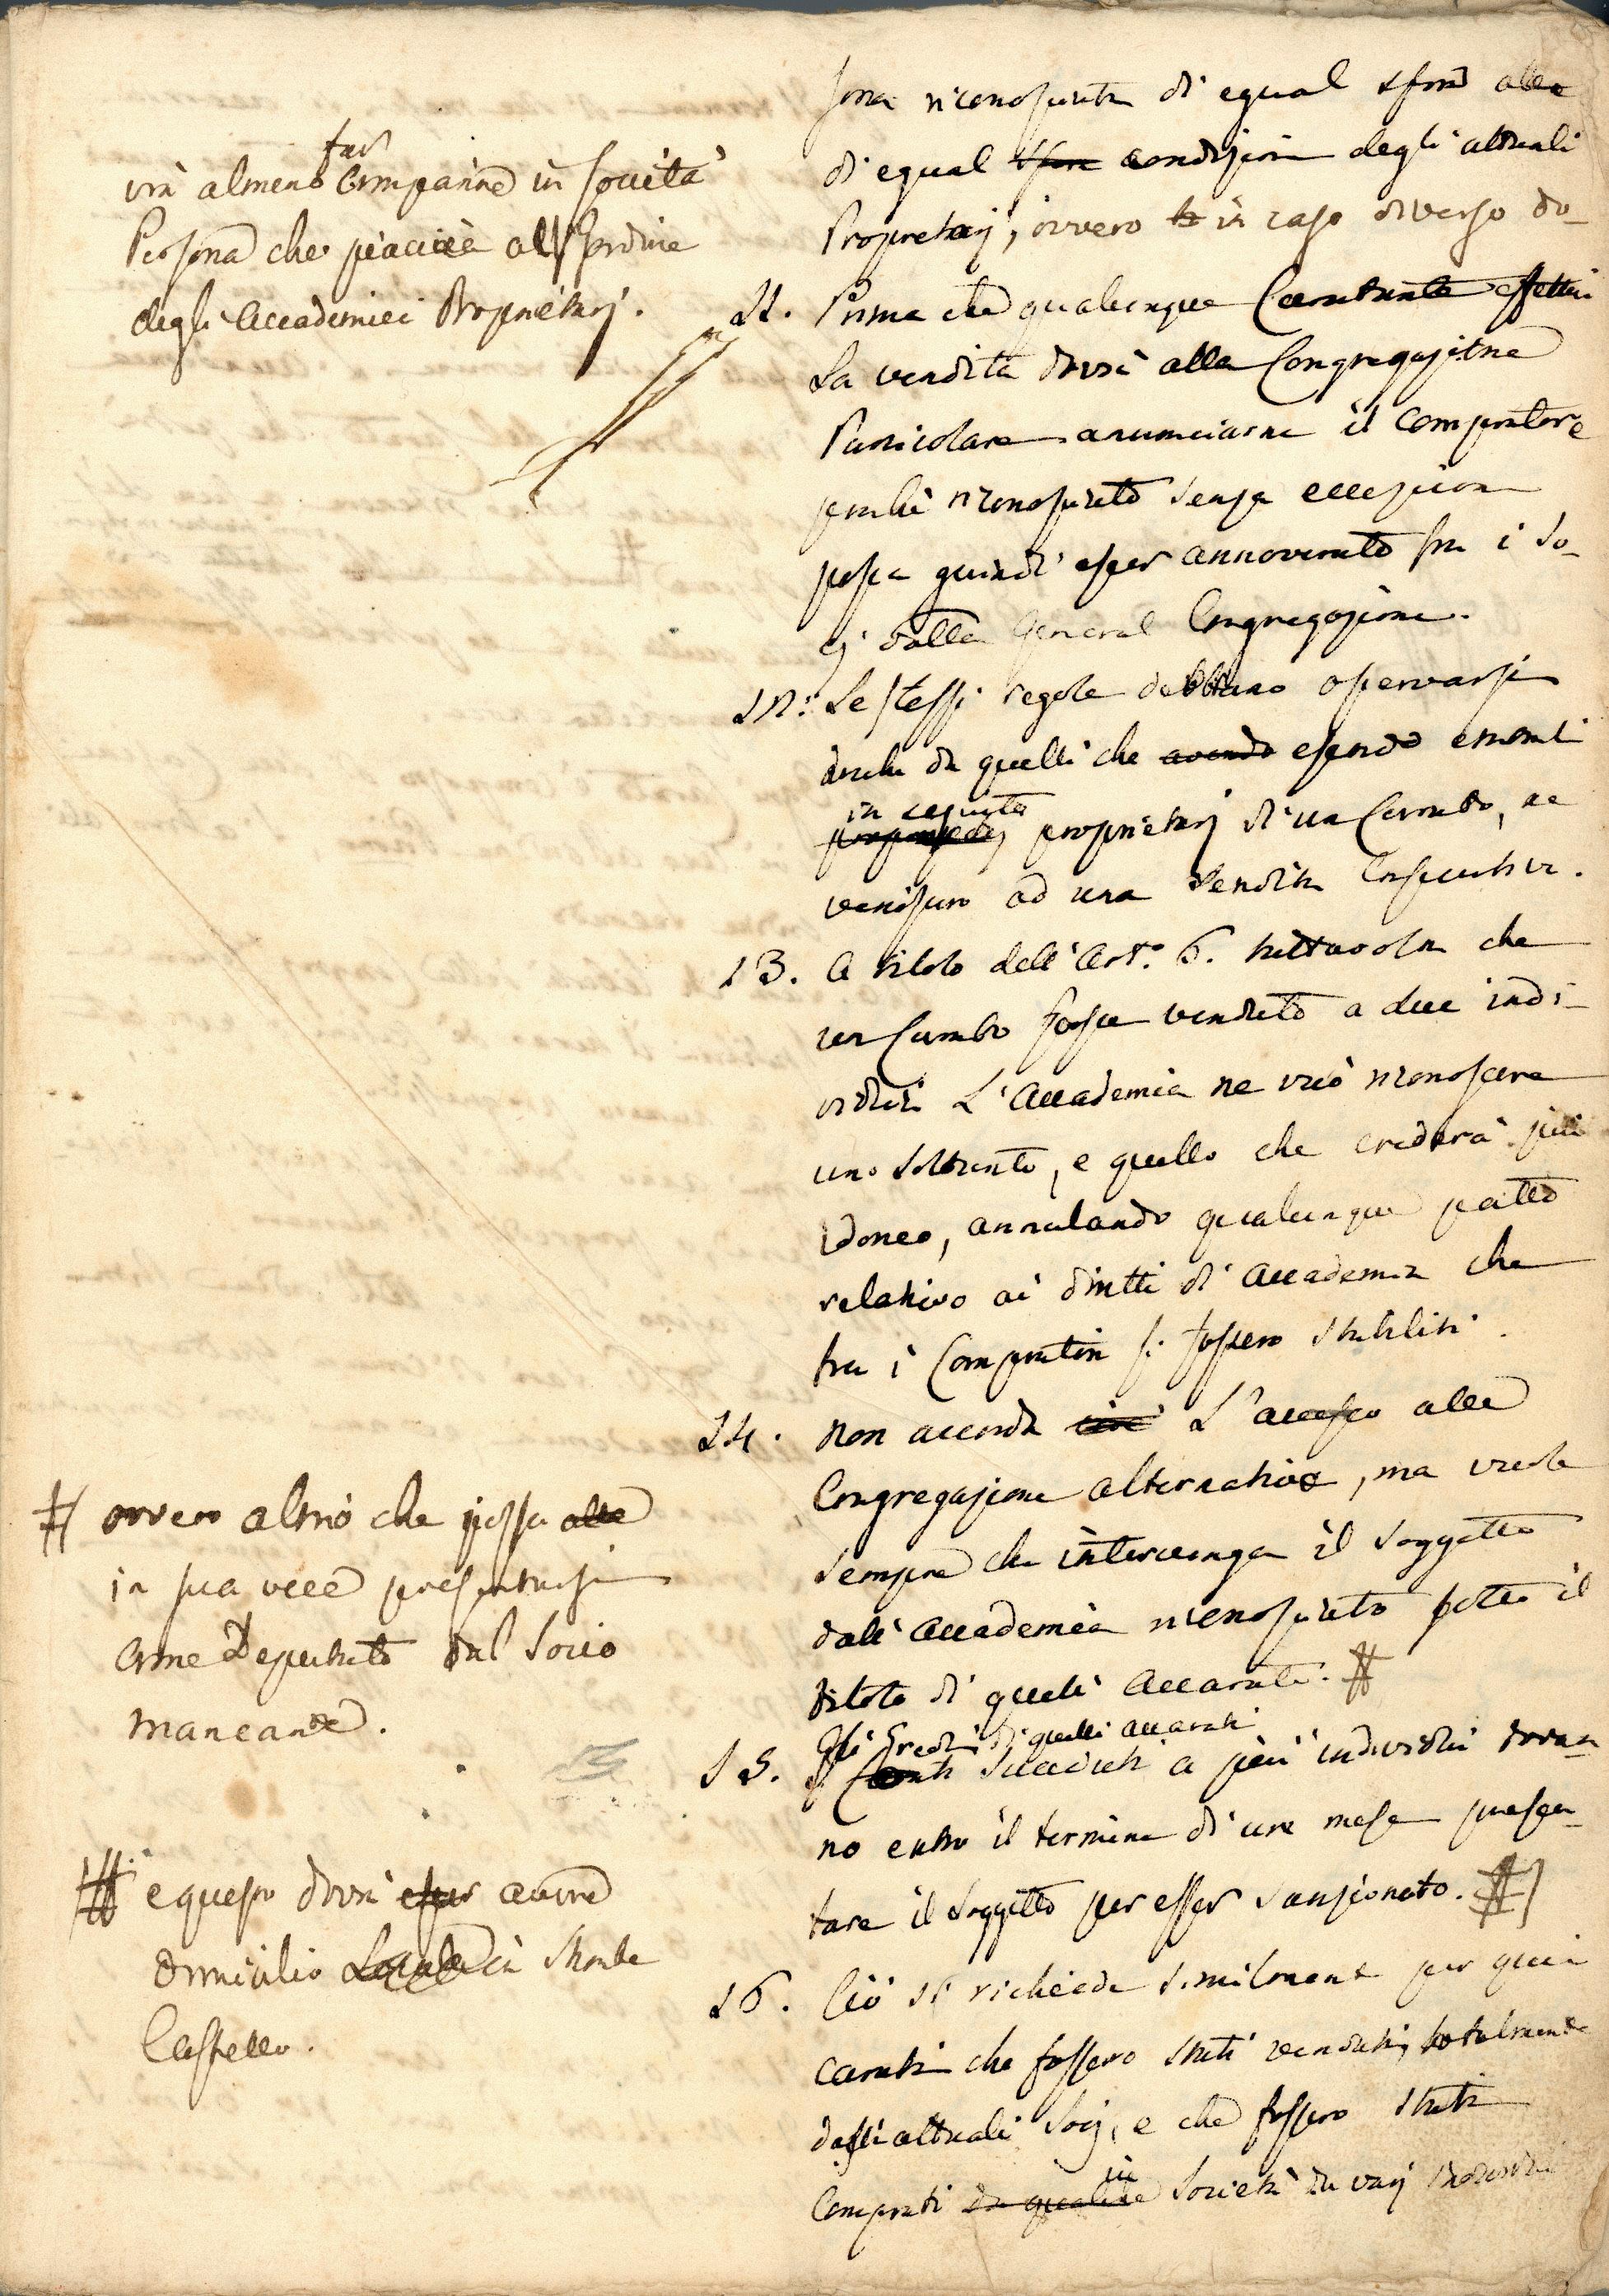 sona riconosciuta di egual sfera alla
di egual sfera condizione degli attuali
Proprietarj, ovvero in caso diverso do-
vrà almeno far comparire in società
Persona che piaccia all'Ordine
degli Accademici Proprietarj.
11. Prima che qualunque Caratante effettui
la vendita dovrà alla Congregazione
Particolare annunciarne il compratore
perchè riconosciuto senza eccezione
possa quindi esser annoverato fra i So-
cj dalla General Congregazione.
12. Le stesse regole debbano osservarsi
anche da quelli che avendo essendo
in seguito proprietarj di un Carato, ne
venissero ad una vendita consecutiva.
13. A titolo dell'Art.º 6. tuttavolta che
un Carato fosse venduto a due indi-
vidui L'Accademia ne vuò riconoscere
uno soltanto, e quello che crederà più
idoneo, annulando qualunque patto
relativo ai diritti di Accademia che
tra i Compratori si fossero stabiliti.
14. Non accorda L'accesso alla
Congregazione alternativo, ma vuole
sempre che intervenga il soggetto
dall'Accademia riconosciuto sotto il
titolo di quelli Accarati. #
# ovvero altrò che possa alla
in sua vece presentarsi
come Deputato dal Socio
mancante.
15. Gli Eredi di quelli accarati
succeduti a più individui dovran-
no entro il termine di un mese presen-
tare il soggetto per esser sanzionato. #
# e questo dovrà esser avere
domicilio Locale in Monte
Castello.
16. Ciò si richiede similmente per quei
carati che fossero stati venduti totalmente
dagli attuali Socj, e che fossero stati
comprati da qualche in Società da varj individui